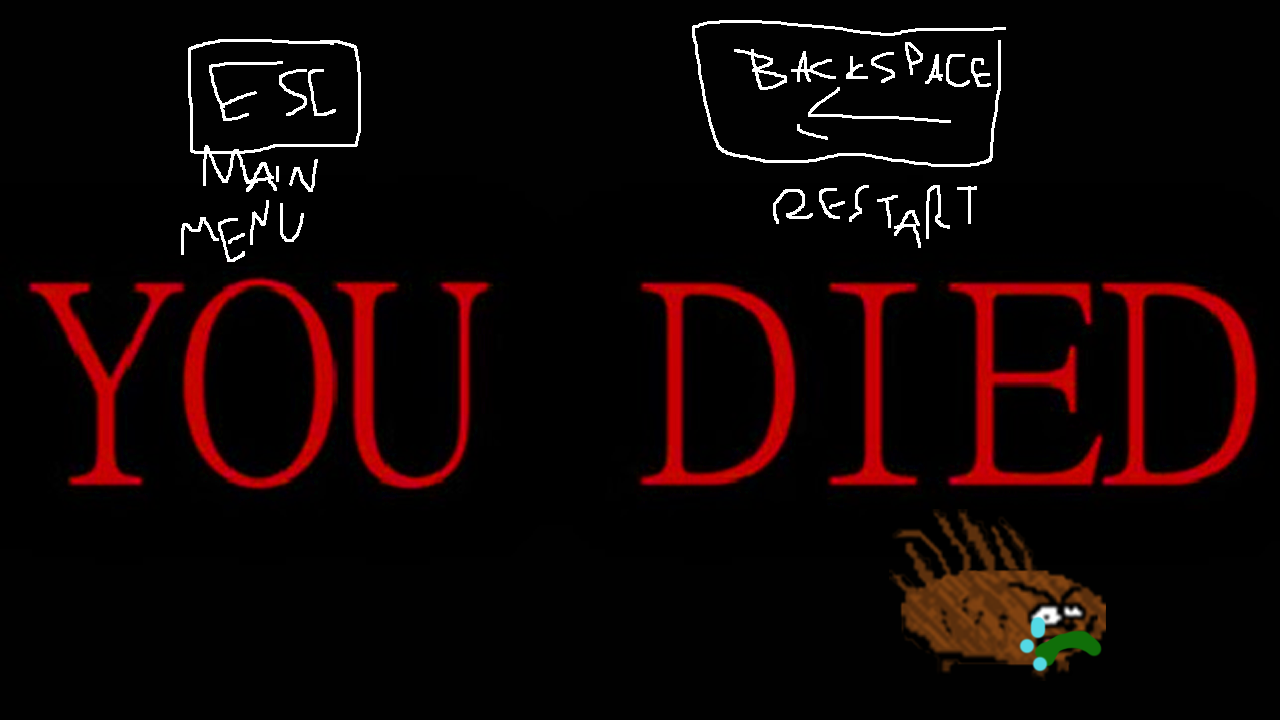 ESC
MAIN
MENU
BACKSPACE
RESTART
YOU DIED